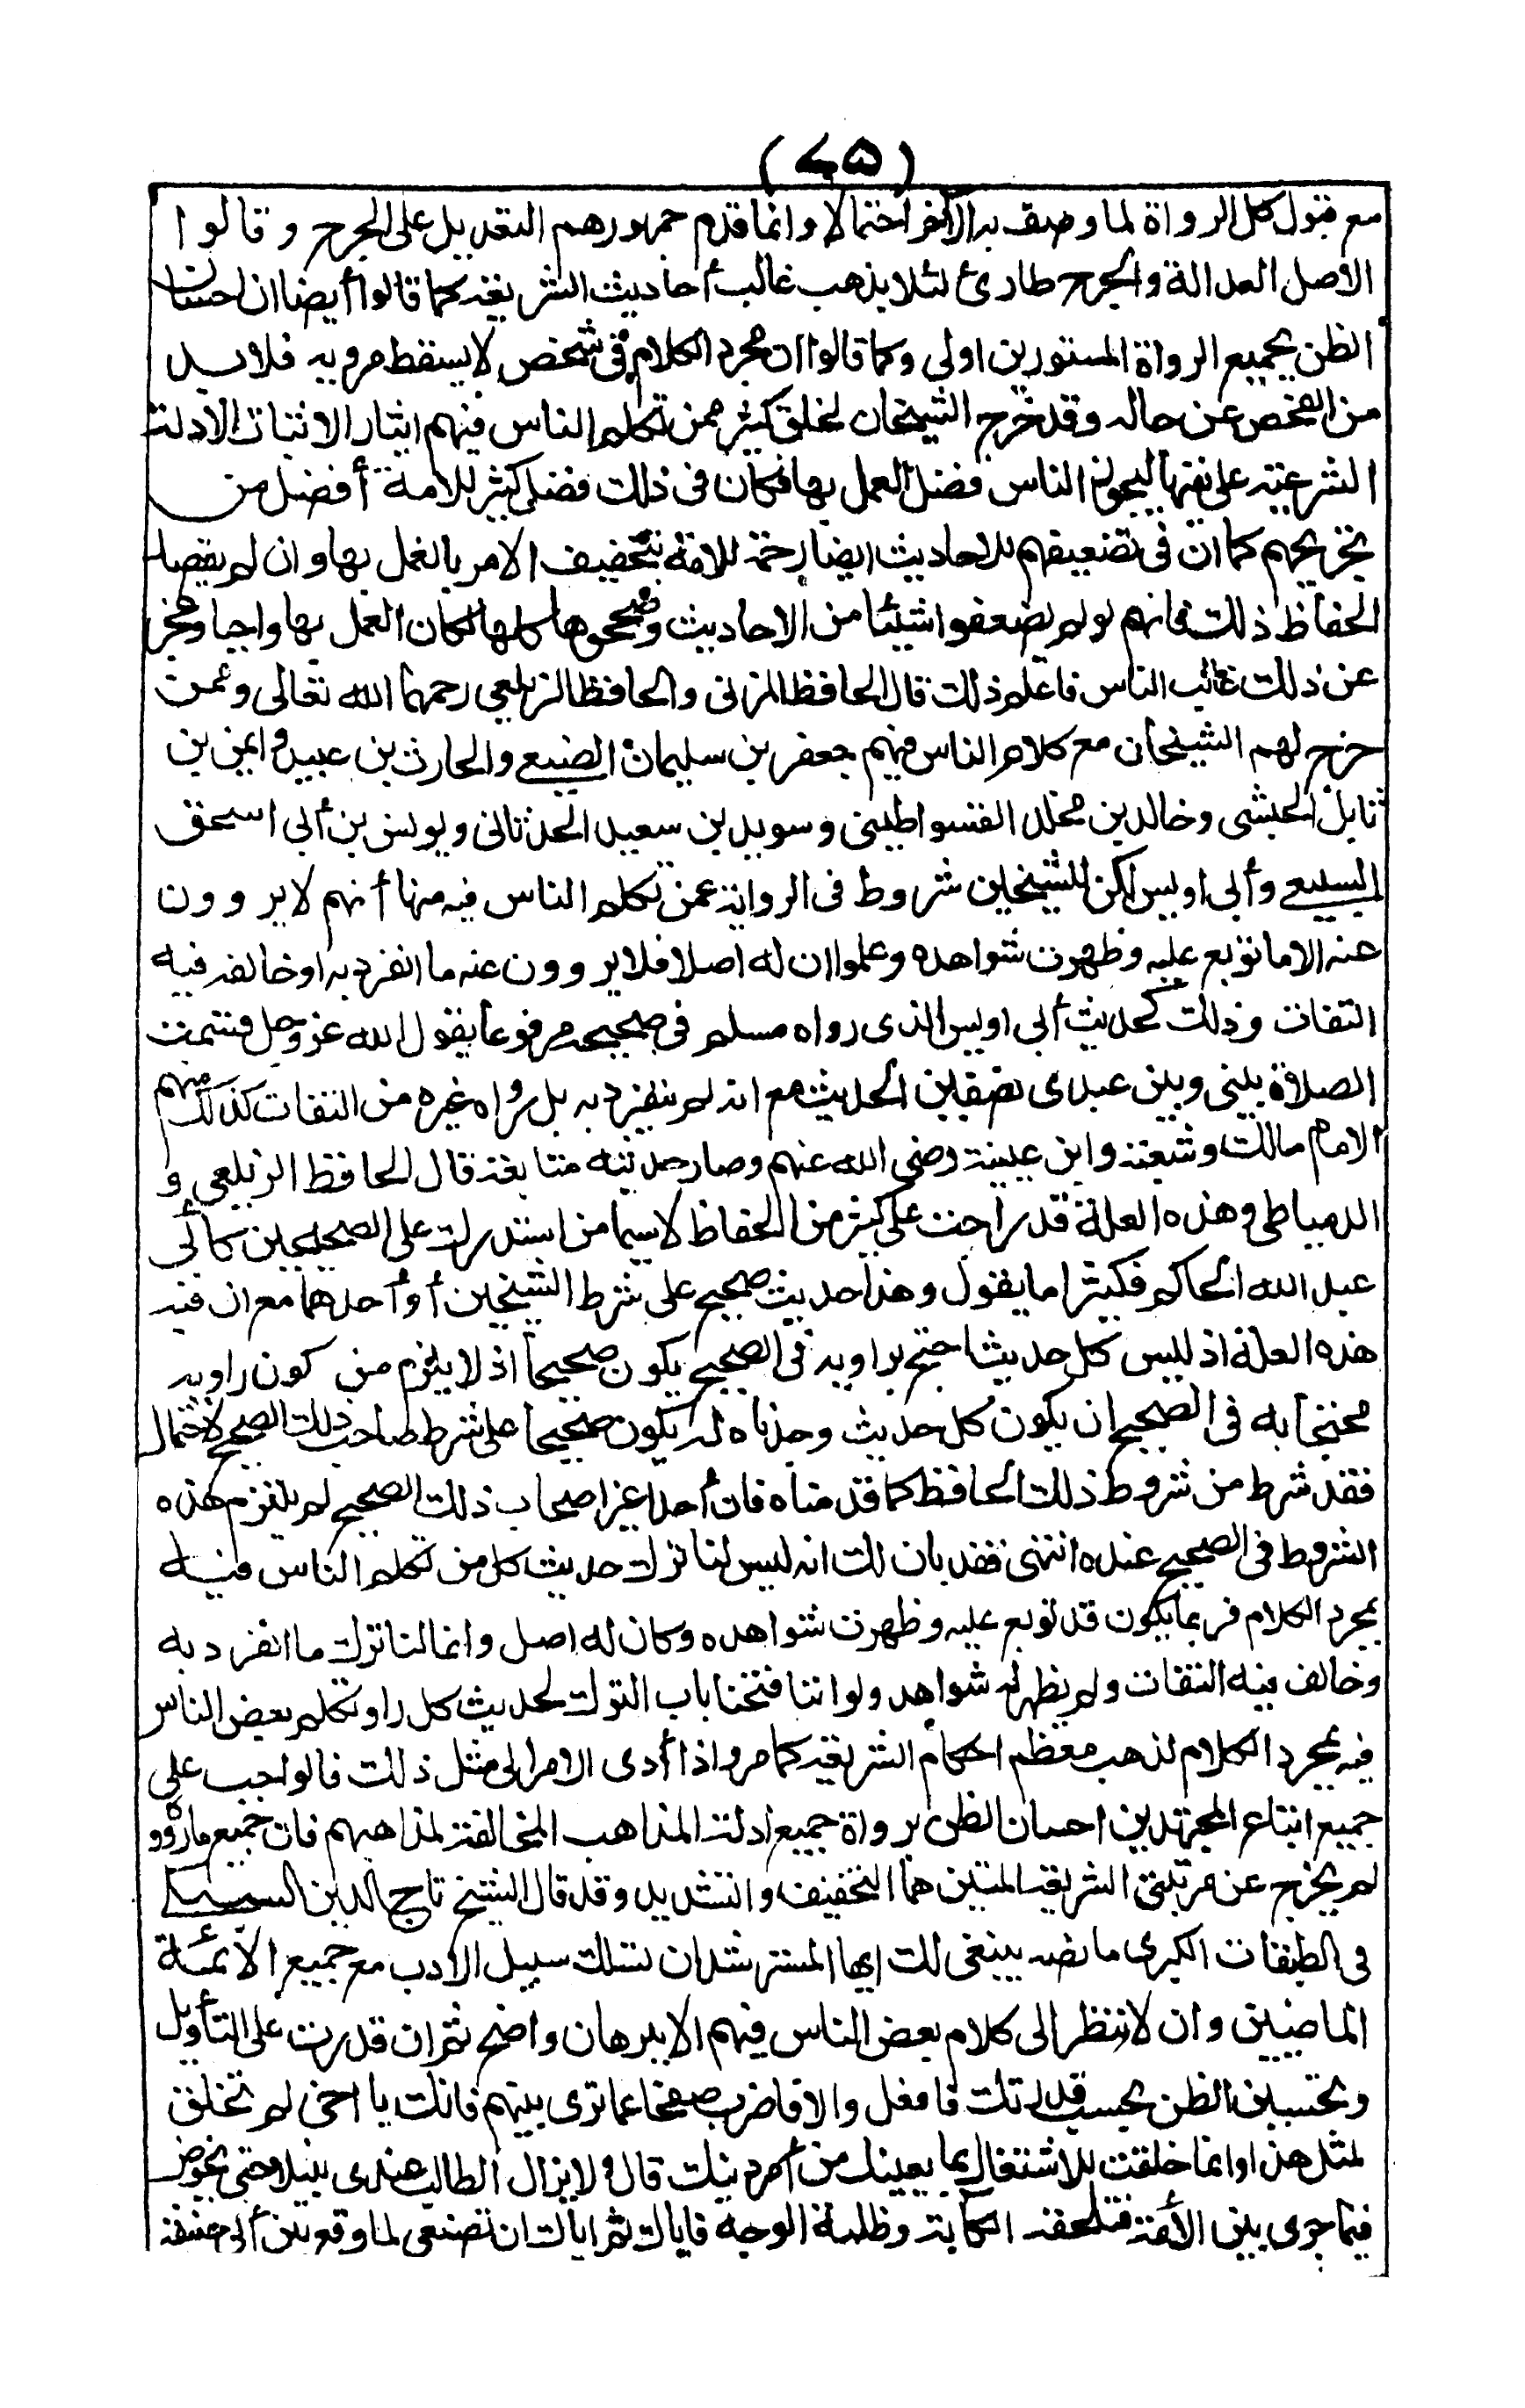 (٤٥)
مع قبول كل الرواة لما وصف به الآخر احتمالا وانما قدم جمهورهم التعديل على الجرح وقالوا
الاصل العدالة والجرح طارئ لئلا يذهب غالب أحاديث الشريعة كما قالوا أيضا ان احسان
الظن بجميع الرواة المستورين اولى وكما قالوا ان مجرد الكلام في شخص لا يسقط مرويه فلا بد
من الفحص عن حاله وقد خرج الشيخان لخلق كثير ممن تكلم الناس فيهم ايثارا لاثبات الأدلة
الشرعية على نفيها ليحوز الناس فضل العمل بها فكان في ذلك فضل كثير للامة أفضل من
تجريحهم كما ان في تضعيفهم للاحاديث ايضا رحمة للامة بتخفيف الامر بالعمل بها وان لم يقصد
الحفاظ ذلك فانهم لو لم يضعفوا شيئا من الاحاديث وصححوها كلها لكان العمل بها واجبا وعجز
عن ذلك غالب الناس فاعلم ذلك قال الحافظ المزني والحافظ الزيلعي رحمهما الله تعالى وممن
خرج لهم الشيخان مع كلام الناس فيهم جعفر بن سليمان الضبعي والحارث بن عبيد وايمن بن
نابل الحبشي وخالد بن مخلد القسواطيني وسويد بن سعيد الحدثاني ويونس بن أبي اسحق
السبيعي وأبي اويس لكن للشيخين شروط في الرواية عمن تكلم الناس فيه منها أنهم لا يروون
عنه الا ما توبع عليه وظهرت شواهده وعلموا ان له اصلا فلا يروون عنه ما انفرد به او خالفه فيه
الثقات وذلك كحديث أبي اويس الذي رواه مسلم في صحيحه مرفوعا يقول الله عز وجل قسمت
الصلاة بيني وبين عبدي نصفين الحديث مع انه لم ينفرد به بل رواه غيره من الثقات كذلك منهم
الامام مالك وشعبة وابن عيينة رضي الله عنهم وصار حديثه متابعة قال الحافظ الزيلعي و
الدمياطي وهذه العلة قد راجت على كثير من الحفاظ لا سيما من استدرك على الصحيحين كأبي
عبد الله الحاكم فكثيرا ما يقول وهذا حديث صحيح على شرط الشيخين أو أحدهما مع ان فيه
هذه العلة اذ ليس كل حديث احتج براويه في الصحيح يكون صحيحا اذ لا يلزم من كون راويه
محتجا به في الصحيح ان يكون كل حديث وجدناه له يكون صحيحا على شرط صاحب ذلك الصحيح لاحتمال
فقد شرط من شروط ذلك الحافظ كما قدمناه فان أحدا غير اصحاب ذلك الصحيح لم يلتزم هذه
الشروط في الصحيح عنده انتهى فقد بان لك انه ليس لنا ترك حديث كل من تكلم الناس فيه
بمجرد الكلام فربما يكون قد توبع عليه وظهرت شواهده وكان له اصل وانما لنا ترك ما انفرد به
وخالف فيه الثقات ولم يظهر له شواهد ولو اننا فتحنا باب الترك لحديث كل راو تكلم بعض الناس
فيه بمجرد الكلام لذهب معظم احكام الشريعة كما مر واذا أدى الامر الى مثل ذلك فالواجب على
جميع اتباع المجتهدين احسان الظن برواة جميع ادلة المذاهب المخالفة لمذاهبهم فان جميع ما رووه
لم يخرج عن مرتبتي الشريعة اللتين هما التخفيف والتشديد وقد قال الشيخ تاج الدين السبكي
في الطبقات الكبرى ما نصه ينبغي لك ايها المسترشد ان تسلك سبيل الادب مع جميع الأئمة
الماضيين وان لا تنظر الى كلام بعض الناس فيهم الا ببرهان واضح ثم ان قدرت على التأويل
وتحسين الظن بحسب قدرتك فافعل والا فاضرب صفحا عما ترى بينهم فانك يا اخي لم تخلق
لمثل هذا وانما خلقت للاشتغال بما يعنيك من أمر دينك قال ولا يزال الطالب عندي نبيلا حتى يخوض
فيما جرى بين الأئمة فتلحقه الكآبة وظلمة الوجه فاياك ثم اياك ان تصغي لما وقع بين أبي حنيفة